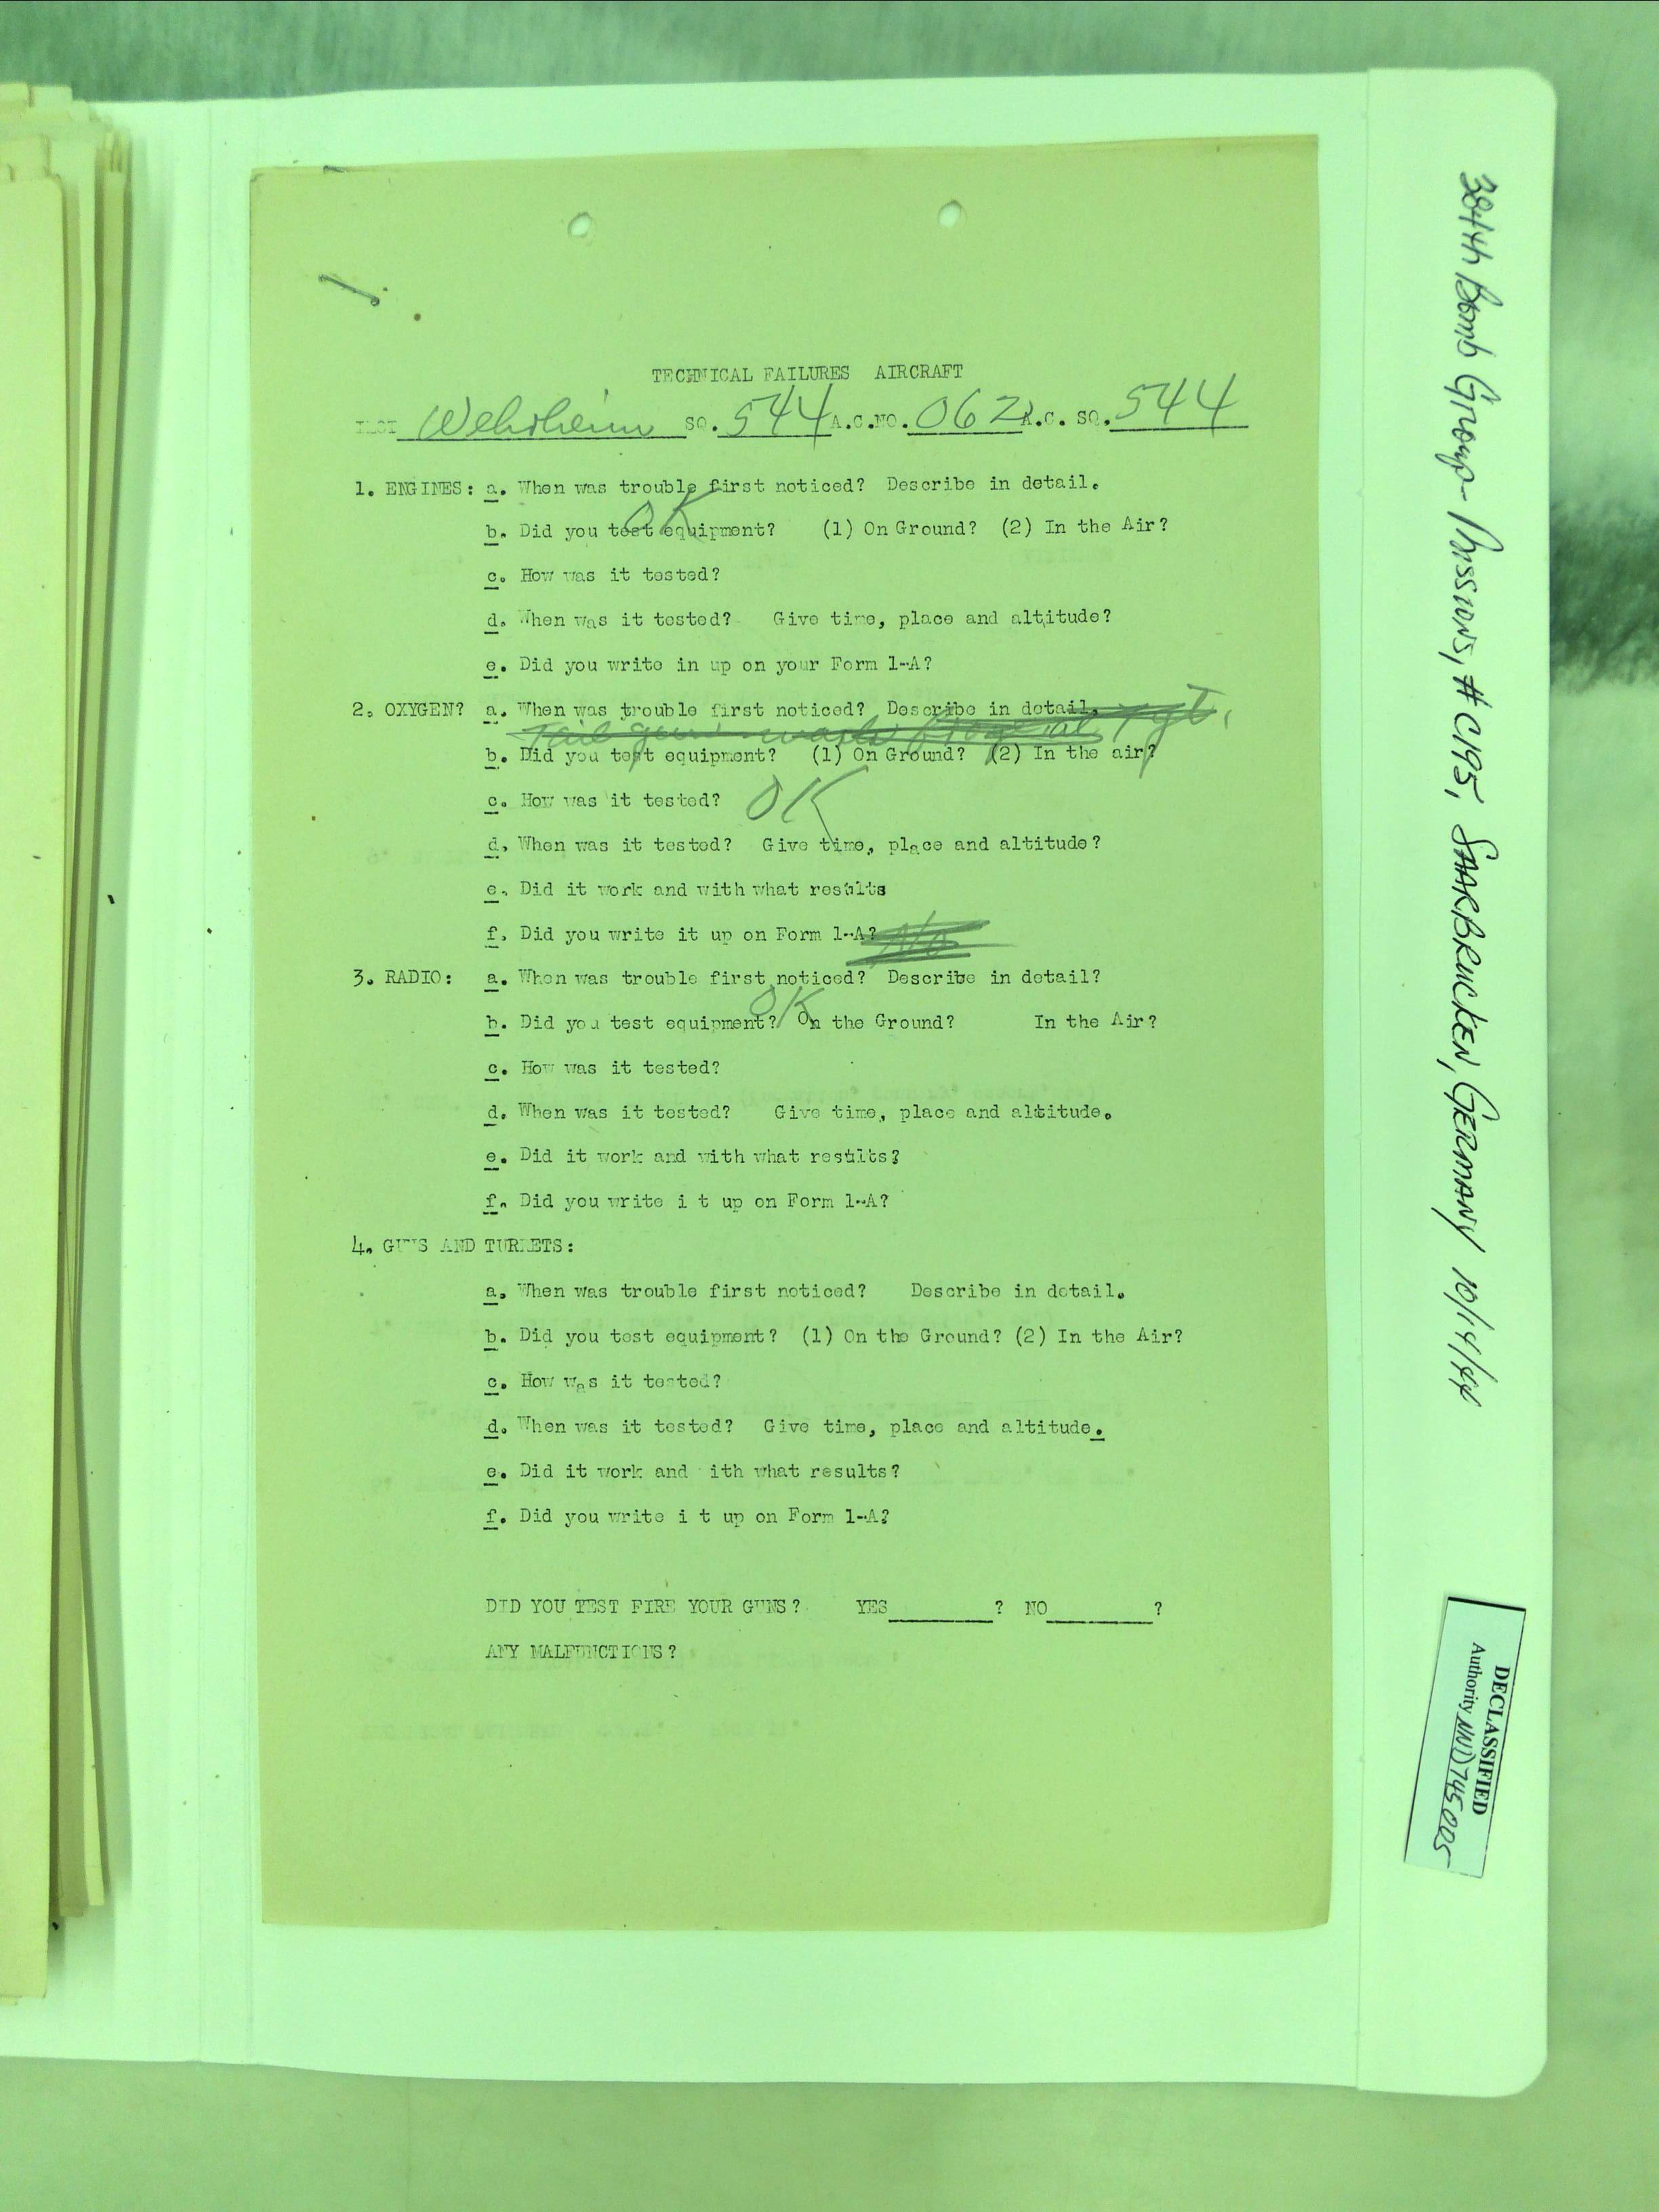 TECHNICAL FAILURES AIRCRAFT
Wehrheim SQ. 544 A.C.NO. 062 A.C. SQ. 544
1. ENGINES: a. When was trouble first noticed? Describe in detail.
OK
b. Did you test equipment? (1) On Ground? (2) In the Air?
c. How was it tested?
d. When was it tested? Give time, place and altitude?
e. Did you write in up on your Form 1-A?
2. OXYGEN? a. When was trouble first noticed? Describe in detail.
Tail gun mask
b. Did you test equipment? (1) On Ground? (2) In the air?
c. How was it tested? OK
d. When was it tested? Give time, place and altitude?
e. Did it work and with what results
f. Did you write it up on Form 1-A? No
3. RADIO: a. When was trouble first noticed? Describe in detail?
OK
b. Did you test equipment? On the Ground? In the Air?
c. How was it tested?
d. When was it tested? Give time, place and altitude.
e. Did it work and with what results?
f. Did you write i t up on Form 1-A?
4. GUNS AND TURRETS:
a. When was trouble first noticed? Describe in detail.
b. Did you test equipment? (1) On the Ground? (2) In the Air?
c. How was it tested?
d. When was it tested? Give time, place and altitude.
e. Did it work and ith what results?
f. Did you write i t up on Form 1-A?
DID YOU TEST FIRE YOUR GUNS? YES ? NO ?
ANY MALFUNCTIONS?
384th Bomb Group - Missions, # C195, SAARBRUCKEN, GERMANY 10/14/44
DECLASSIFIED
Authority NND745005